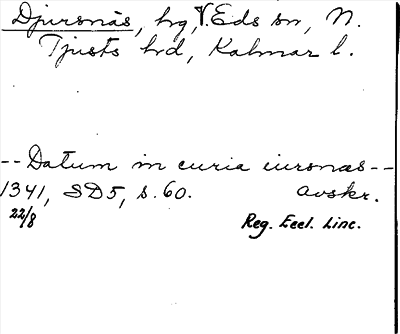 Djursnäs, hg, V. Eds sn, N.
Tjusts hrd, Kalmar l.
--Datum in curia iursnæs--
1341, SD5, s. 60. avskr.
22/8 Reg. Eccl. Linc.